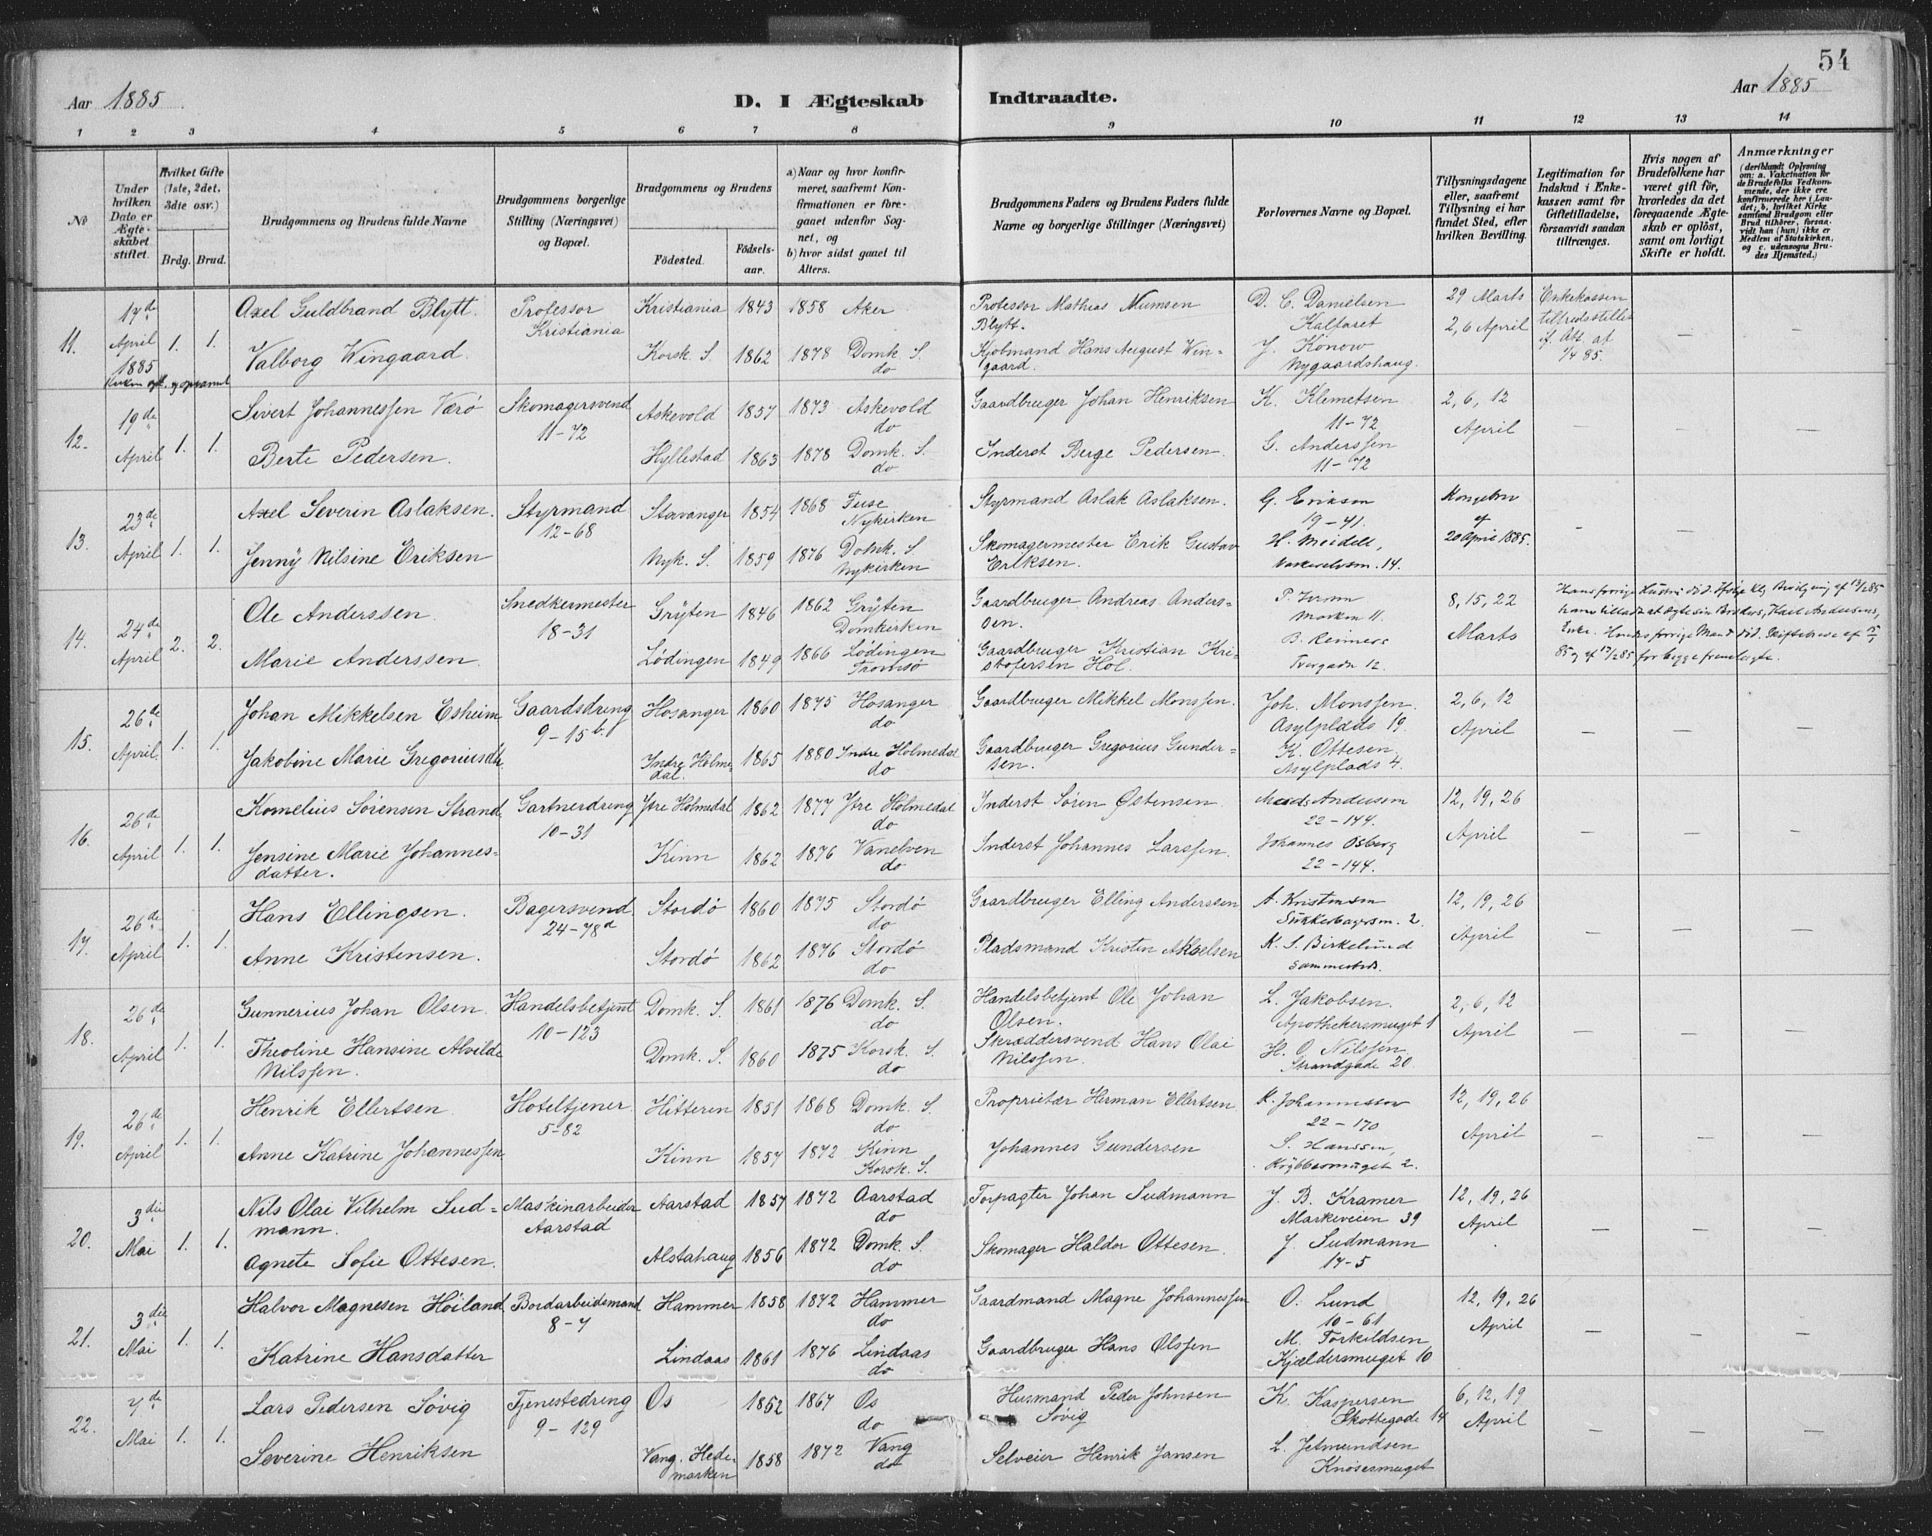 54
Aar 1885
D. I Ægteskab Indtraadte.
Aar 1885
1 2 3 4 5 6 7 8 9 10 11 12 13 14
No
Under hvilken Dato er Ægteskabet stiftet.
Hvilket Gifte (1ste, 2det, 3die osv.)
Brdg. Brud.
Brudgommens og Brudens fulde Navne
Brudgommens borgerlige Stilling (Næringsvei) og Bopæl.
Brudgommens og Brudens
Födested.
Födsels-aar.
a) Naar og hvor konfirmeret, saafremt Konfirmationen er foregaaet udenfor Sognet, og
b) hvor sidst gaaet til Alters.
Brudgommens Faders og Brudens Faders fulde Navne og borgerlige Stillinger (Næringsvei)
Forlovernes Navne og Bopæl.
Tillysningsdagene eller, saafremt Tillysning ei har fundet Sted, efter hvilken Bevilling.
Legitimation for Indskud i Enkekassen samt for Giftetilladelse, forsaavidt saadan tiltrænges.
Hvis nogen af Brudefolkene har været gift för, hvorledes da det foregaaende Ægteskab er oplöst, samt om lovligt Skifte er holdt.
Anmærkninger
(deriblandt Oplysning om: a. Vakcination for de Brudefolks Vedkommende, der ikke ere konfirmerede her i Landet; b. hvilket Kirkesamfund Brudgom eller Brud tilhörer, forsaavidt han (hun) ikke er Medlem af Statskirken, og c. udensogns Brudes Hjemsted.)
11. 17de April 1885 1. 1.
Axel Guldbrand Blytt. Professor Kristiania Kristiania 1843 1858 Aker
Professor Mathias Numsen Blytt. D. C. Danielsen Kalfaret 29 Marts 2, 6 April Enkekassen tilfredsstillet
Valborg Wingaard. Korsk. S. 1862 1878 Domk. S. do
Kjøbmand Hans August Wingaard. J. Konow Nygaardshaug.
12. 19de April 1. 1.
Sivert Johannessen Værö Skomagersvend 11-72 Askevold 1857 1873 Askevold do
Gaardbruger Johan Henriksen K. Klemetsen 11-72 2, 6, 12 April
Berte Pedersen. Hyllestad 1863 1878 Domk. S. do
Inderst Berge Pedersen. G. Anderssen 11-72
13. 23de April 1. 1.
Axel Severin Aslaksen. Styrmand 12-68 Stavanger 1854 1868 Fuse Nykirken
Styrmand Aslak Aslaksen. G. Erikson 19-41. Kongebrev af 20 April 1885.
Jenny Nilsine Eriksen Nyk. S. 1859 1876 Domk. S. Nykirken
Skomagermester Erik Gustav Eriksen. H. Meidell,
14. 24de April 2. 2.
Ole Anderssen Snedkermester 18-31 Grÿten 1846 1862 Grÿten Domkirken
Gaardbruger Andreas Andersen. 8, 15, 22 Marts
Marie Anderssen. Lödingen 1849 1866 Lödingen Tromsö
Gaardbruger Kristian Kristofersen Hol. B. Reimers Tvergade 12.
15. 26de April 1. 1.
Johan Mikkelsen Esheim Gaardsdreng 9-15b. Hosanger 1860 1875 Hosanger do
Gaardbruger Mikkel Monssen. Joh. Monssen. Asylplads 19 2, 6, 12 April
Jakobine Marie Gregoriusdtr Indre Holmedal. 1865 1880 Indre Holmedal do
Gaardbruger Gregorius Gundersen. K. Ottesen, Asylplads 4.
16. 26de April 1. 1.
Kornelius Sörensen Strand Gartnerdreng 10-31 Ytre Holmedal 1862 1877 Ytre Holmedal do
Inderst Sören Östensen Mads Andersen 22-144. 12, 19, 26 April
Jensine Marie Johannesdatter. Kinn 1862 1876 Vanelven do
Inderst Johannes Larssen. Johannes Osberg 22-144.
17. 26de April 1. 1.
Hans Ellingsen. Bagersvend 24-78d Stordö 1860 1875 Stordö do
Gaardbruger Elling Anderssen A. Kristensen 12, 19, 26 April
Anne Kristensen. Stordö 1862 1876 Stordö do
Pladsmand Kristen Akselsen K. S. Birkelund
18. 26de April 1. 1.
Gunnerius Johan Olsen. Handelsbetjent 10-123 Domk. S. 1861 1876 Domk. S. do
Handelsbetjent Ole Johan Olsen. L. Jakobsen. Apothekersmuget 1 2, 6, 12 April
Theoline Hansine Alvilde Nilssen. Domk. S. 1860 1875 Korsk. S. do
Skræddersvend Hans Olai Nilssen. H. O. Nilssen Strandgade 20.
19. 26de April 1. 1.
Henrik Ellertsen Hoteltjener 5-82 Hitteren 1851 1868 Domk. S. do
Proprietær Herman Ellertsen K. Johannessen 22-170 12, 19, 26 April
Anne Katrine Johannessen Kinn 1857 1872 Kinn Korsk. S.
Johannes Gundersen S. Hanssen,
20. 3die Mai 1. 1.
Nils Olai Vilhelm Sudmann. Maskinarbeider Aarstad Aarstad 1857 1872 Aarstad do
Forpagter Johan Sudmann J. B. Kramer Markeveien 39 12, 19, 26 April
Agnete Sofie Ottesen. Alstahaug 1856 1872 Domk. S. do
Skomager Haldor Ottesen. J. Sudmann 17-5
21. 3die Mai 1. 1.
Halvor Magnesen Höiland Bordarbeidsmand 8-7 Hammer 1858 1872 Hammer do
Gaardmand Magne Johannessen O. Lund 10-61 12, 19, 26 April
Katrine Hansdatter Lindaas 1861 1876 Lindaas do
Gaardbruger Hans Olssen M. Torkildsen Kjældersmuget 10
22. 7de Mai 1. 1.
Lars Pedersen Sövig Tjenestedreng 9-129 Os 1852 1867 Os do
Husmand Peder Johnsen Sövig K. Kaspersen Skottegade 14 6, 12, 19 April
Severine Henriksen Vang. Hedemarken 1858 1872 Vang do
Selveier Henrik Jansen L. Jetmundsen Knösesmuget